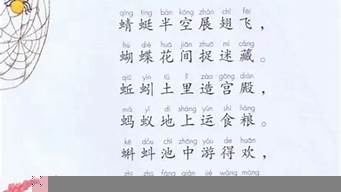 qīng tíng bàn kōng zhǎn chì fēi
蜻蜓半空展翅飞，
hú dié huā jiān zhuō mí cáng
蝴蝶花间捉迷藏。
qiū yǐn tǔ lǐ zào gōng diàn
蚯蚓土里造宫殿，
mǎ yǐ dì shàng yùn shí liáng
蚂蚁地上运食粮。
kē dǒu chí zhōng yóu de huān
蝌蚪池中游得欢，
zhī zhū fáng qián jié wǎng máng